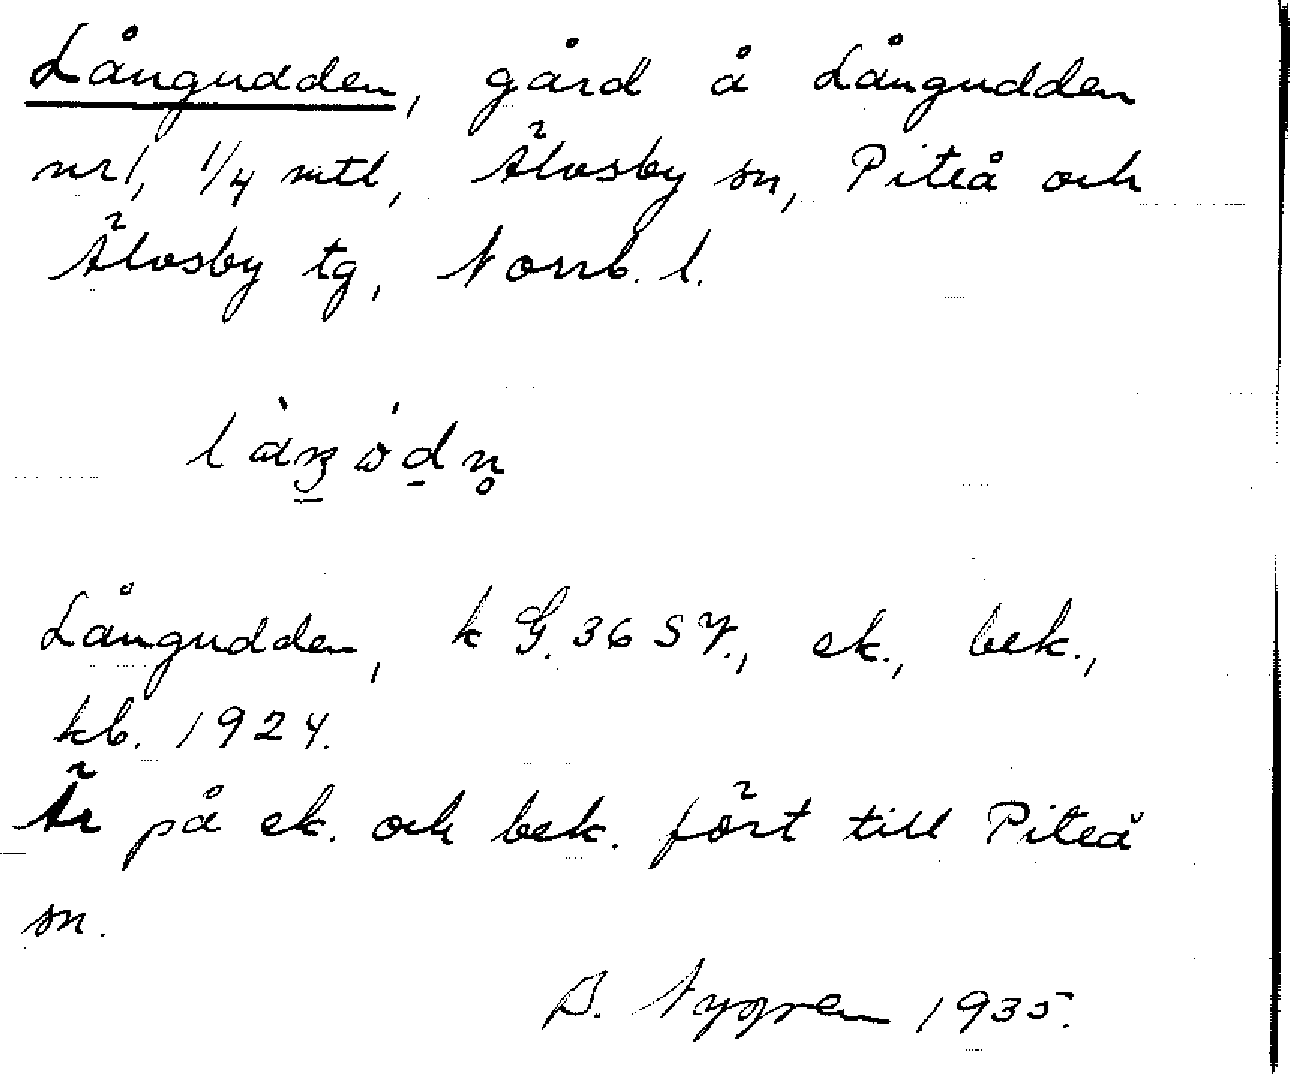 Långudden, gård å Långudden
nr 1, 1/4 mtl, Älvsby sn, Piteå och
Älvsby tg, Norrb. l.
Långudden, k G. 36 SV., ek., bek.,
kb. 1924.
Är på ek. och bek. fört till Piteå
sn.
B. Nygren 1935.